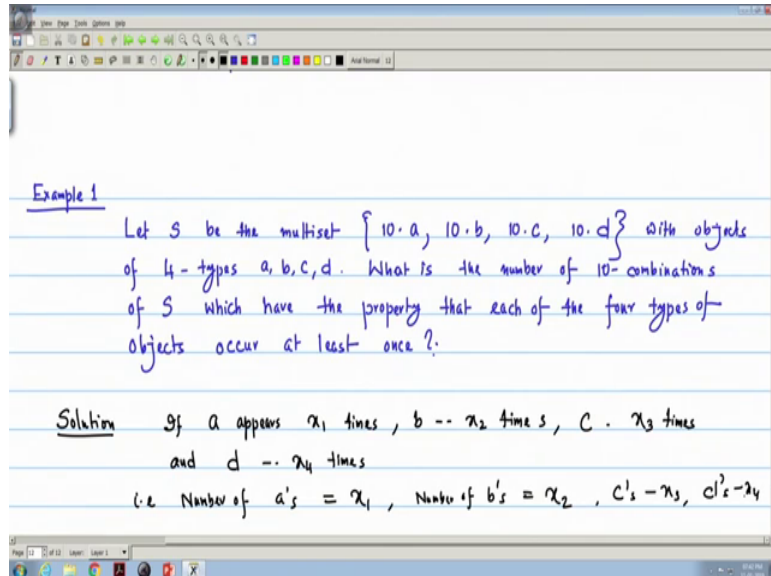 View Page Tools Options Help
Arial Normal 12
Example 1
Let S be the multiset { 10·a, 10·b, 10·c, 10·d} with objects
of 4-types a, b, c, d. What is the number of 10-combinations
of S which have the property that each of the four types of
objects occur at least once?.
Solution If a appears x₁ times, b -- x₂ times, C · x₃ times
and d -- x₄ times
i.e Number of a's = x₁, Number of b's = x₂, c's - x₃, d's - x₄
Page 12 of 12 Layer: Layer 1